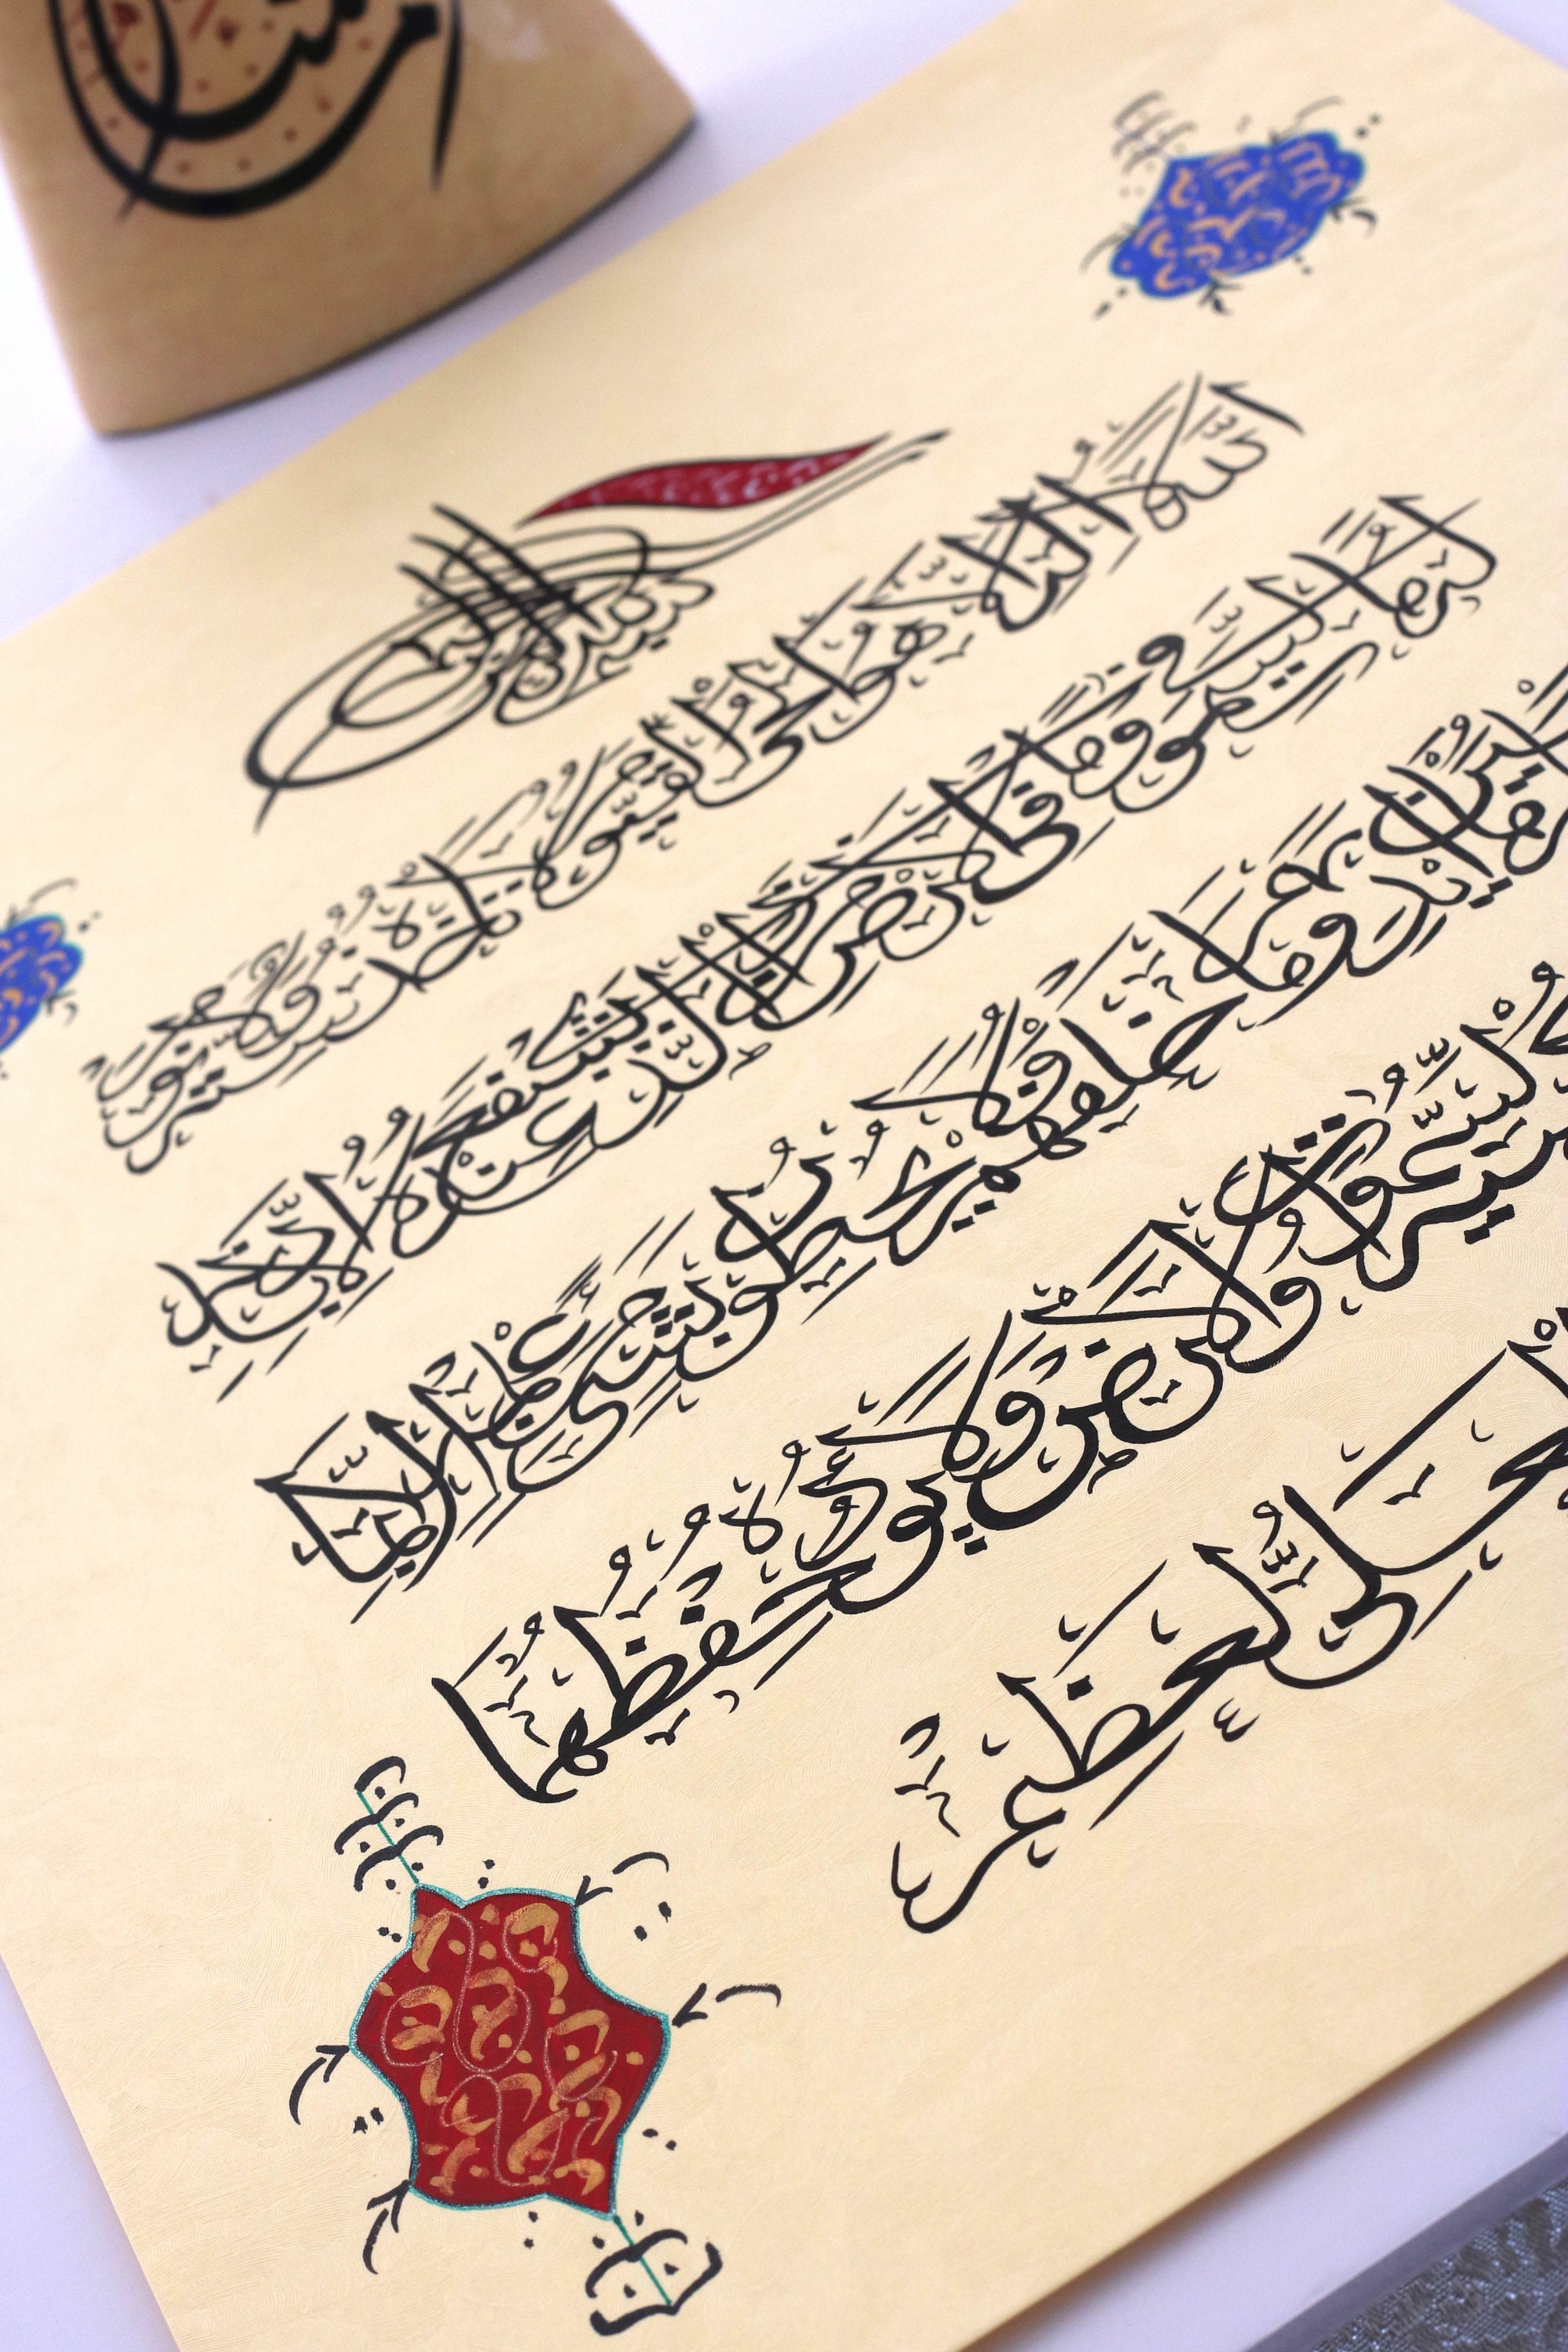 بسم الله الرحمن الرحيم
الله لا اله الا هو الحي القيوم لا تأخذه سنة ولا نوم
له ما في السموات وما في الارض من ذا الذي يشفع عنده الا باذنه
ايديهم وما خلفهم ولا يحيطون بشيء من علمه الا بما
السموات والارض ولا يؤده حفظهما
العلي العظيم